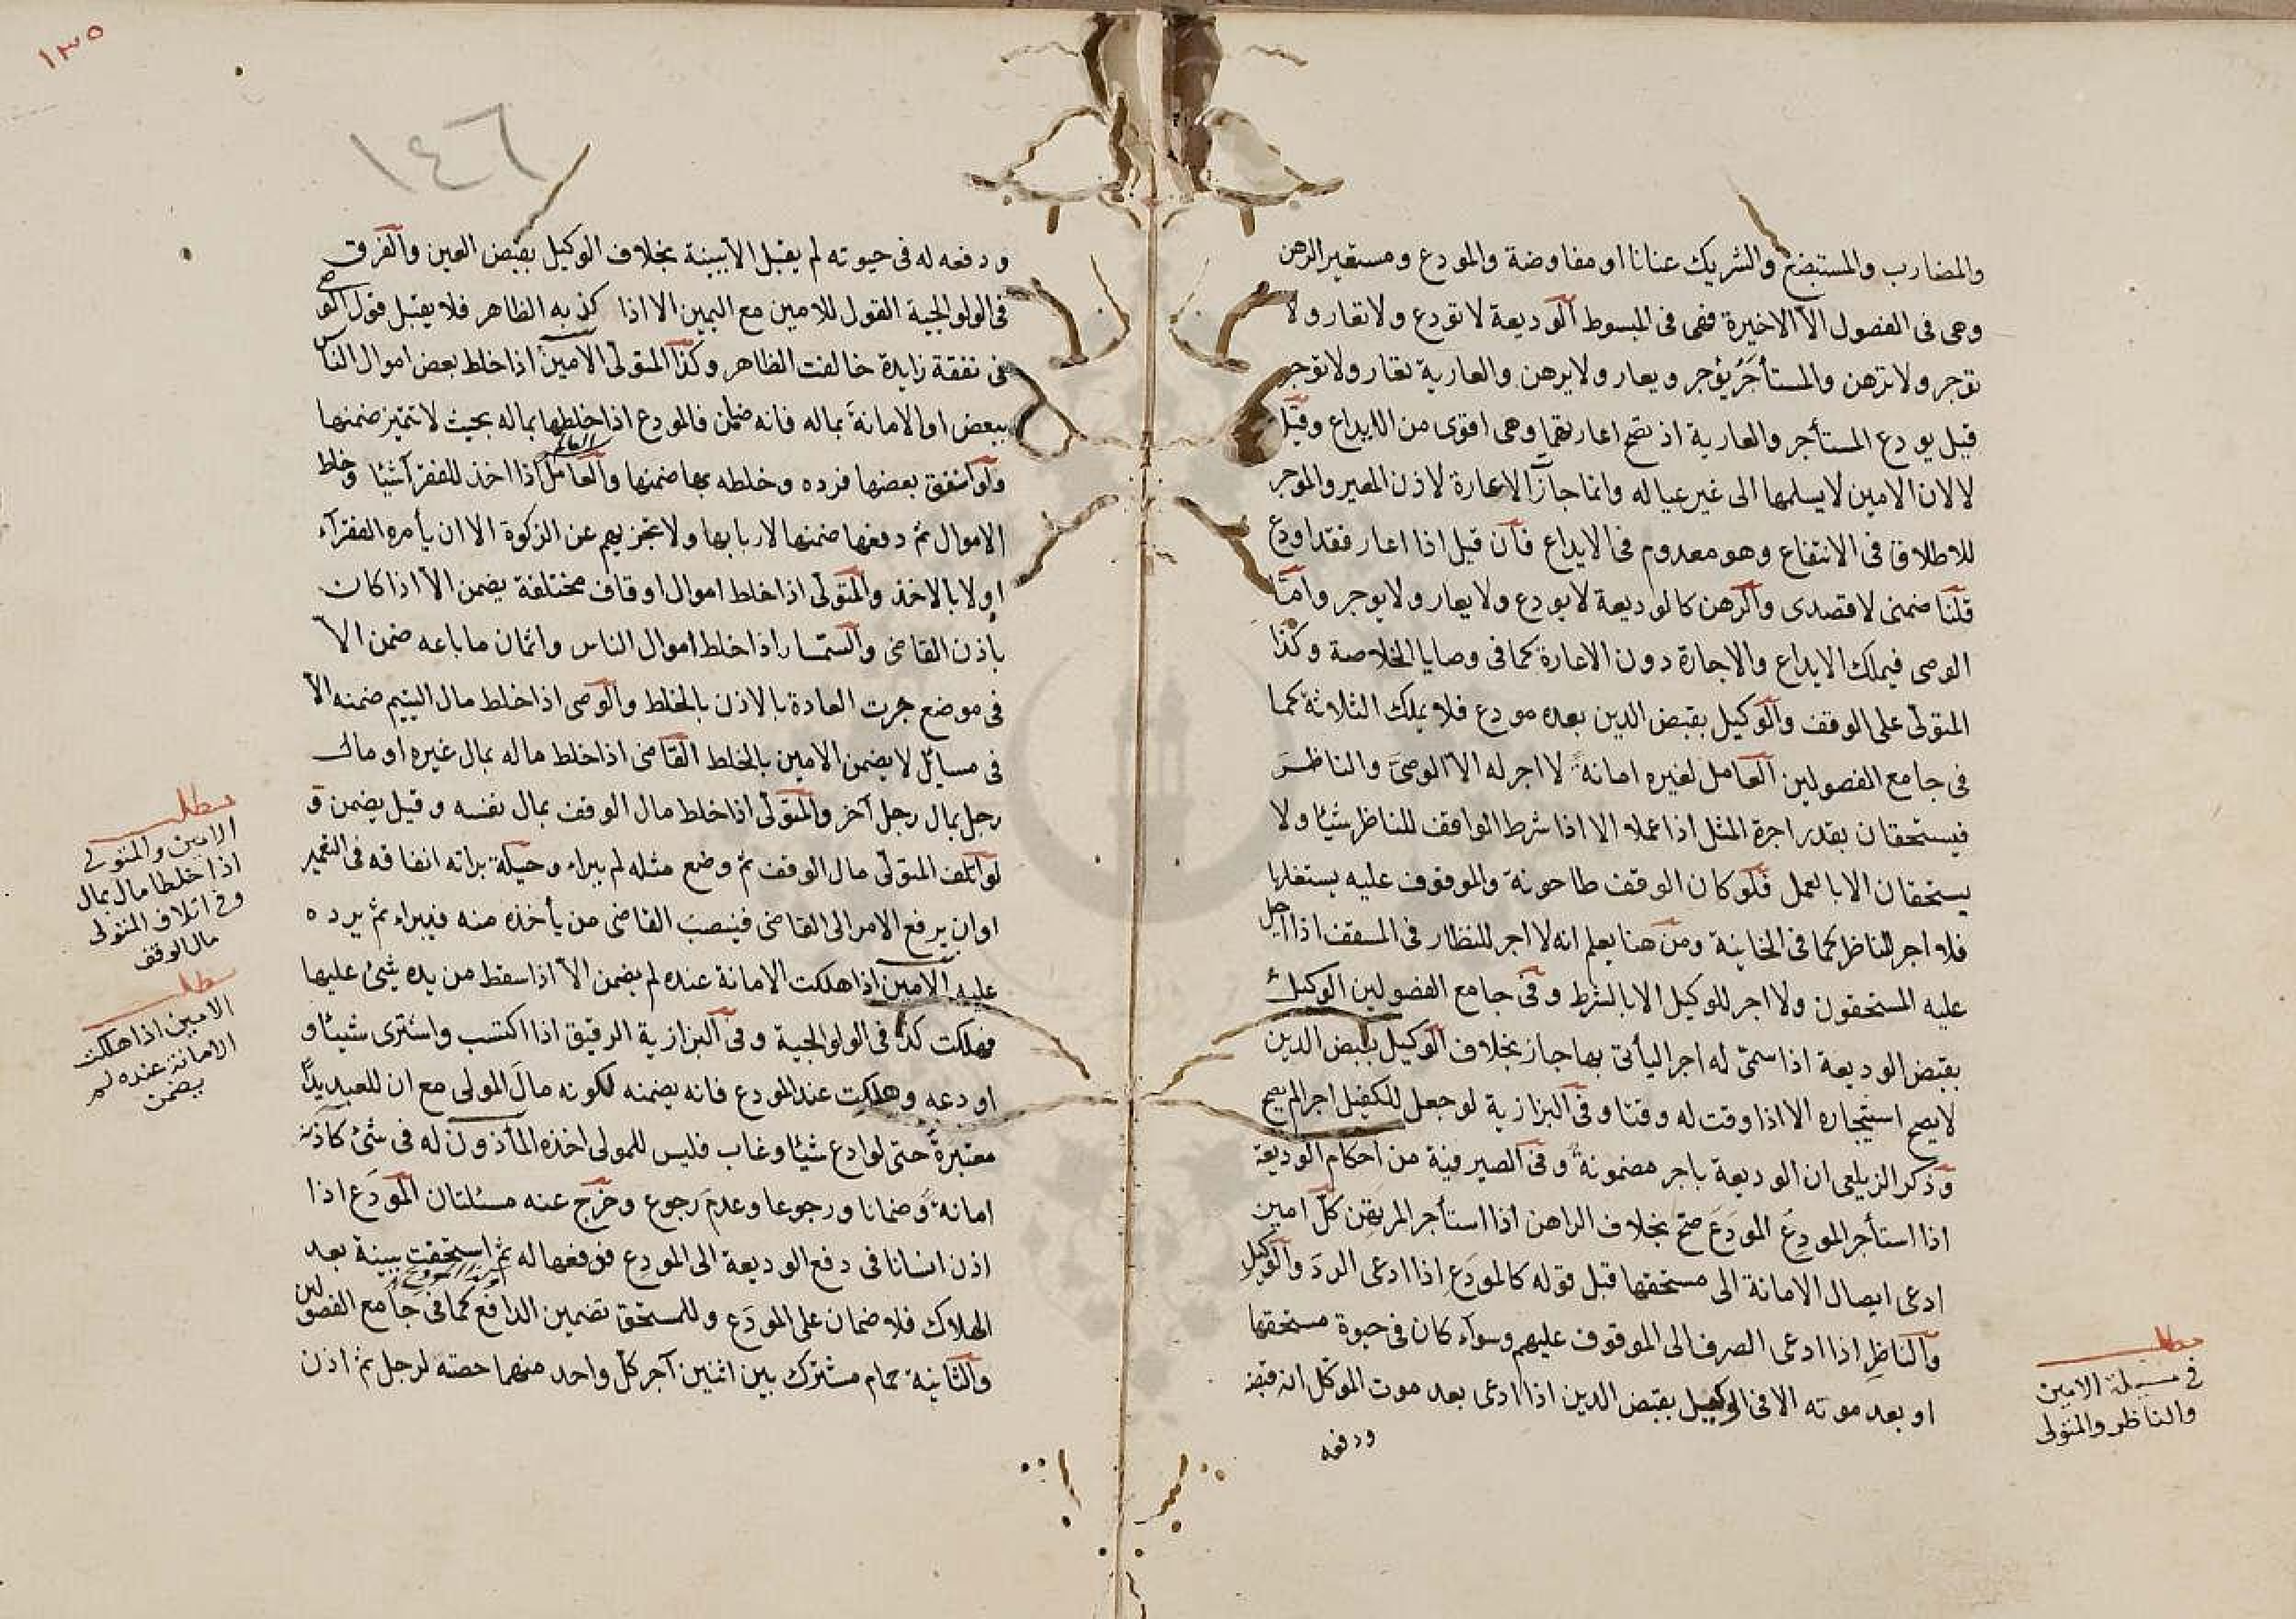 والمضارب والمستبضع والشريك عنانا او مفاوضة والمودع ومستعير الرهن
وهى فى الفصول الا الاخيرة فهى فى المبسوط الوديعة لا تودع ولا تعار ولا
توجر ولا ترهن والمستأجَرُ يؤجر ويعار ولا يرهن والعارية تعار ولا توجر
قيل يودع المستأجر والعارية اذ تصح اعارتهما وهى اقوى من الايداع وقيل
لا لان الامين لا يسلمها الى غير عياله وانما جاز الاعارة لاذن المعير والموجر
للاطلاق فى الانتفاع وهو معدوم فى الايداع فان قيل اذا اعار فقد اودع
قلنا ضمنى لا قصدى والرهن كالوديعة لا يودع ولا يعار ولا يوجر واما
الوصى فيملك الايداع والاجارة دون الاعارة كما فى وصايا الخلاصة وكذا
المتولى على الوقف والوكيل بقبض الدين بعده مودع فلا يملك الثلاثة كما
فى جامع الفصولين العامل لغيره امانة لا اجر له الا الوصى والناظر
فيستحقان بقدر اجرة المثل اذا عملا الا اذا شرط الواقف للناظر شيئا ولا
يستحقان الا بالعمل فلو كان الوقف طاحونة والموقوف عليه يستغلها
فلا اجر للناظر كما فى الخانية ومن هنا يعلم انه لا اجر للنظار فى المسقف اذا احيل
عليه المستحقون ولا اجر للوكيل الا بالشرط وفى جامع الفصولين الوكيل
بقبض الوديعة اذا سمى له اجرا ليأتى بها جاز بخلاف الوكيل بقبض الدين
لا يصح استيجاره الا اذا وقت له وقتا وفى البزازية لو جعل للكفيل اجرا لم يصح
وذكر الزيلعى ان الوديعة باجر مضمونة وفى الصيرفية من احكام الوديعة
اذا استأجر المودِع المودَع صح بخلاف الراهن اذا استأجر المرتهن كل امين
ادعى ايصال الامانة الى مستحقها قبل قوله كالمودَع اذا ادعى الرد والوكيل
والناظر اذا ادعى الصرف الى الموقوف عليهم وسواء كان فى حيوة مستحقها
او بعد موته الا فى الوكيل بقبض الدين اذا ادعى بعد موت الموكل انه قبضه
ودفعه
مطلب
فى مسئلة الامين
والناظر والمتولى
١٣٥
١٤٦
ودفعه له فى حيوته لم يقبل الا ببينة بخلاف الوكيل بقبض العين والفرق
فى الولوالجية القول للامين مع اليمين الا اذا كذبه الظاهر فلا يقبل قول الوصى
فى نفقة زايدة خالفت الظاهر وكذا المتولى الامين اذا خلط بعض اموال الناس
ببعض او الامانة بماله فانه ضامن فالمودع اذا خلطها بماله بحيث لا تتميز ضمنها
ولو انفق بعضها فرده وخلطه بها ضمنها والعامل اذا اخذ للفقرآ شيئا وخلط
الاموال ثم دفعها ضمنها لاربابها ولا تجزيهم عن الزكوة الا ان يأمره الفقرآء
اولا بالاخذ والمتولى اذا خلط اموال اوقاف مختلفة يضمن الا اذا كان
باذن القاضى والسمسار اذا خلط اموال الناس واثمان ما باعه ضمن الا
فى موضع جرت العادة بالاذن بالخلط والوصى اذا خلط مال اليتيم ضمنه الا
فى مسائل لا يضمن الامين بالخلط القاضى اذا خلط ماله بمال غيره او مال
رجل بمال رجل آخر والمتولى اذا خلط مال الوقف بمال نفسه وقيل يضمن و
لو اتلف المتولى مال الوقف ثم وضع مثله لم يبراء وحيلة برائه انفاقه فى التعمير
او ان يرفع الامر الى القاضى فينصب القاضى من يأخذه منه فيبراء ثم يرده
عليه الامين اذا هلكت الامانة عنده لم يضمن الا اذا سقط من يده شئ عليها
فهلكت كذا فى الولوالجية وفى البزازية الرقيق اذا اكتسب واشترى شيئا و
اودعه وهلكت عند المودع فانه يضمنه لكونه مال المولى مع ان للعبد يدا
معتبرة حتى لو اودع شيئا وغاب فليس للمولى اخذه المأذون له فى شئ كآذنه
امانة وضمانا ورجوعا وعدم رجوع وخرج عنه مسئلتان المودَع اذا
اذن انسانا فى دفع الوديعة الى المودِع فدفعها له ثم استحقت ببينة بعد
الهلاك فلا ضمان على المودَع وللمستحق تضمين الدافع كما فى جامع الفصولين
والثانية حمام مشترك بين اثنين آجر كل واحد منهما حصته لرجل ثم اذن
مطلب
الامين والمتولى
اذا خلطا مال بمال
وفى اتلاف المتولى
مال الوقف
مطلب
الامين اذا هلكت
الامانة عنده لم
يضمن